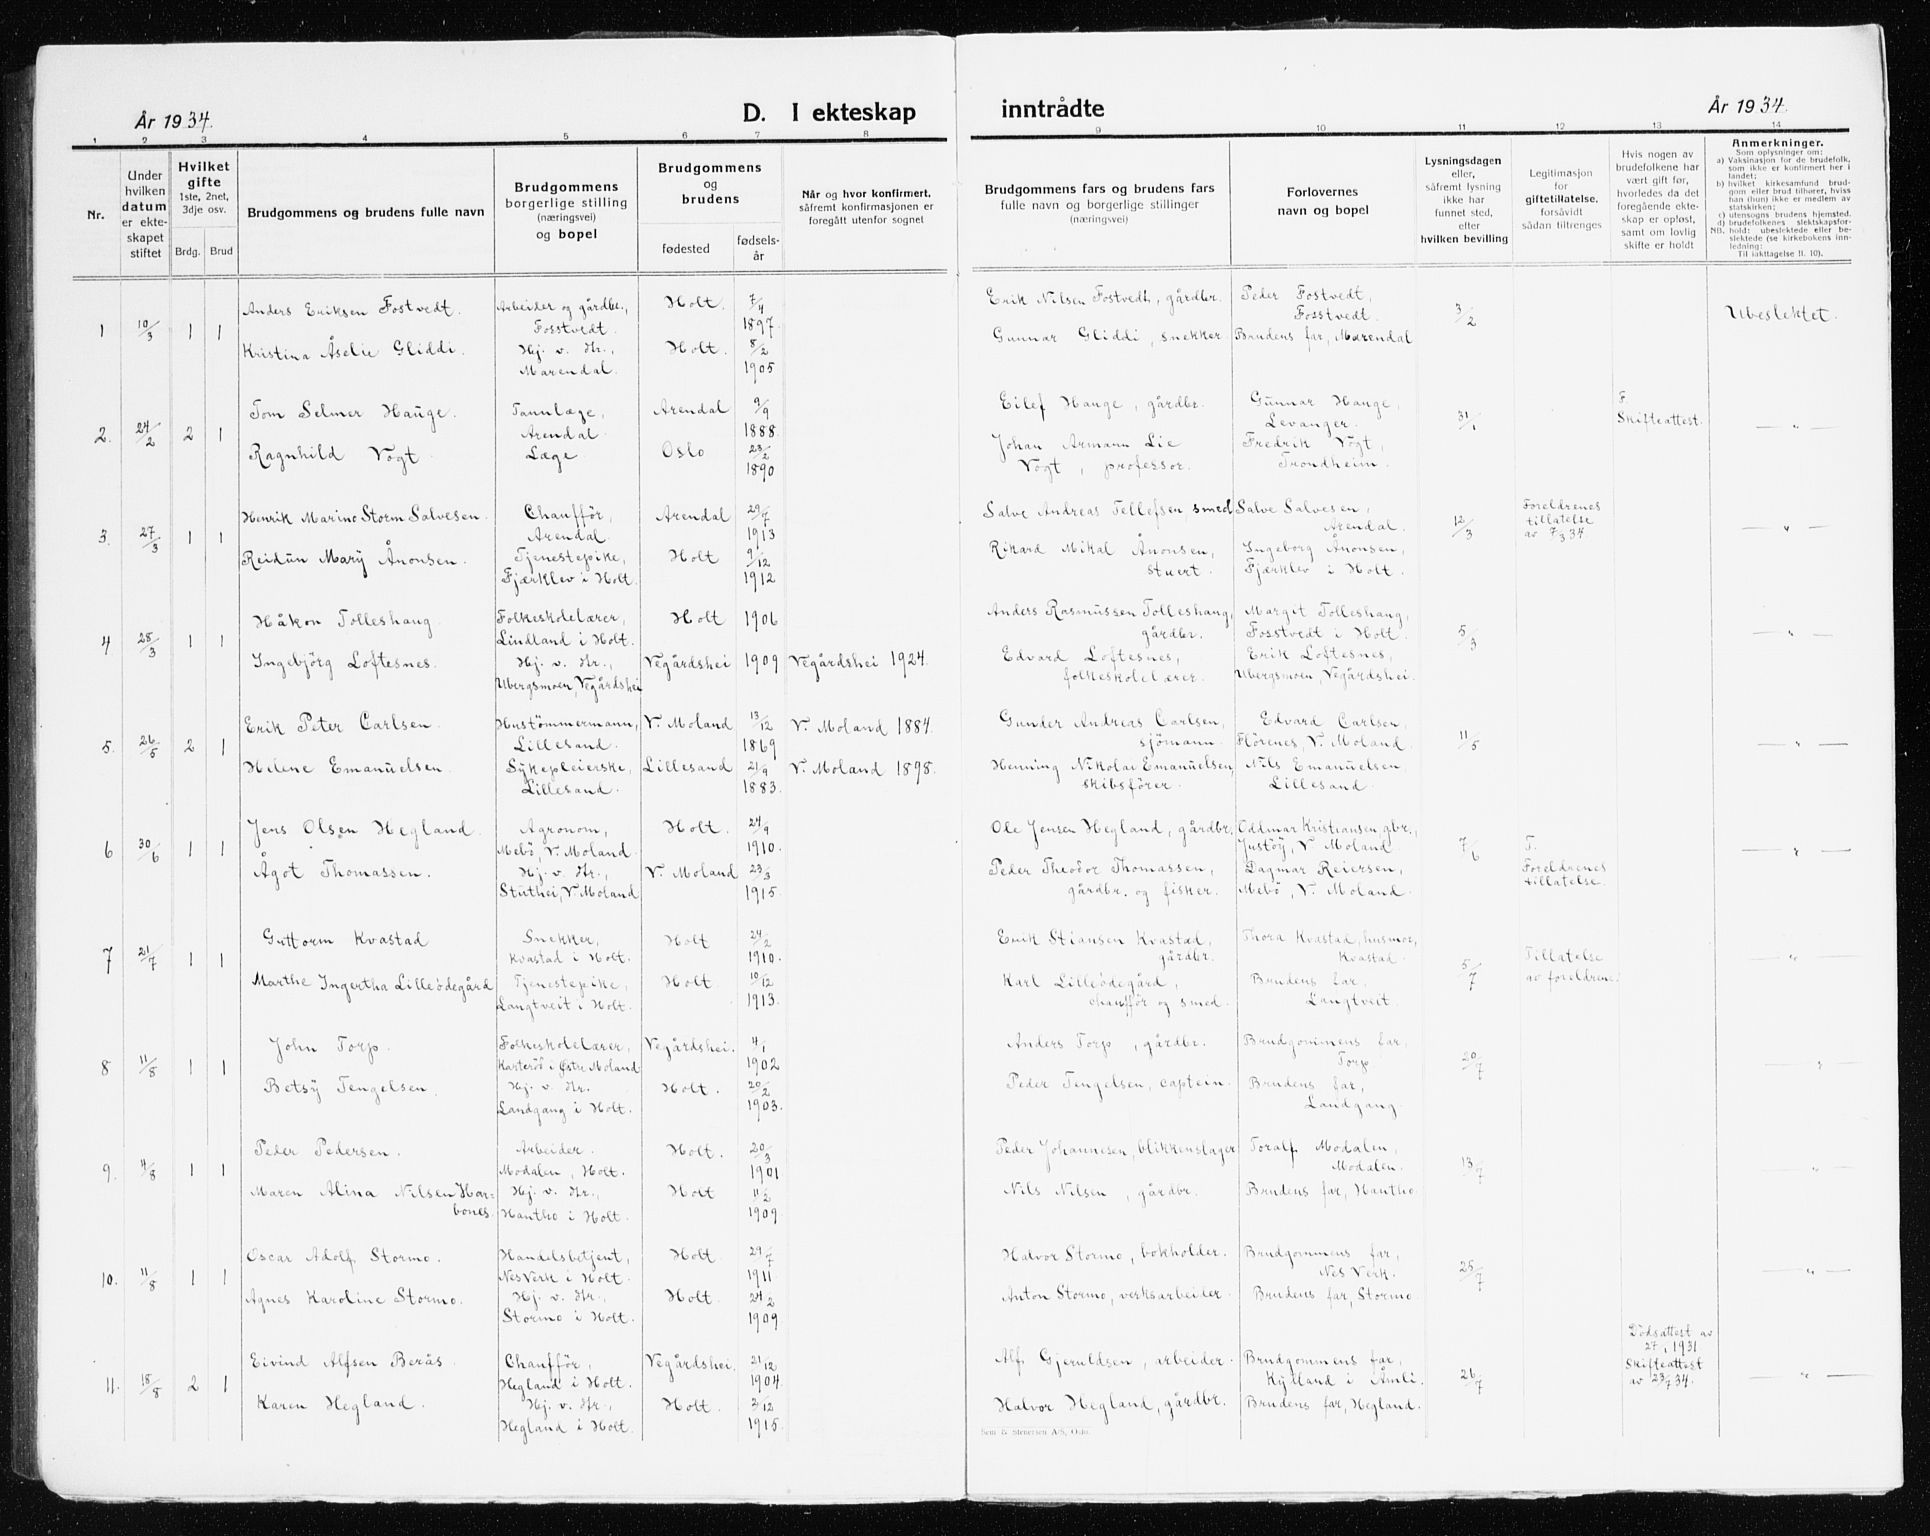 År 1934.
D. I ekteskap
inntrådte
År 1934.
1 2 3 4 5 6 7 8 9 10 11 12 13 14
Nr.
Under
hvilken
datum
er ekte-
skapet
stiftet
Hvilket
gifte
1ste, 2net,
3dje osv.
Brdg. Brud
Brudgommens og brudens fulle navn
Brudgommens
borgerlige stilling
(næringsvei)
og bopel
Brudgommens
og
brudens
fødested
fødsels-
år
Når og hvor konfirmert,
såfremt konfirmasjonen er
foregått utenfor sognet
Brudgommens fars og brudens fars
fulle navn og borgerlige stillinger
(næringsvei)
Forlovernes
navn og bopel
Lysningsdagen
eller,
såfremt lysning
ikke har
funnet sted,
efter
hvilken bevilling
Legitimasjon
for
giftetillatelse.
forsåvidt
sådan tiltrenges
Hvis nogen av
brudefolkene har
vært gift før,
hvorledes da det
foregående ekte-
skap er opløst,
samt om lovlig
skifte er holdt
Anmerkninger.
Som oplysninger om:
a) Vaksinasjon for de brudefolk,
som ikke er konfirmert her i
landet;
b) hvilket kirkesamfund brud-
gom eller brud tilhører, hviss
han (hun) ikke er medlem av
statskirken;
c) utensogns brudens hjemsted.
d) brudefolkenes slektskapsfor-
NB. hold: ubeslektede eller be-
slektede (se kirkebokens inn-
ledning:
Til iakttagelse II. 10).
1 10/3 1 1
Anders Eriksen Fostvedt.
Arbeider og gårdbr.,
Fosstvedt.
Holt. 7/4
1897
Kristina Åselie Gliddi.
Hj. v. Hr.,
Marendal.
Holt. 8/2
1905
Erik Nilsen Fostvedt, gårdbr.
Peder Fostvedt,
Fosstvedt.
Gunnar Gliddi, snekker.
Brudens far, Marendal
3/2
Ubeslektet.
2. 24/2 2 1
Tom Selmer Hauge.
Tannlæge,
Arendal.
Arendal 9/9
1888.
Ragnhild Vogt.
Læge.
Oslo 23/2
1890
Eilef Hauge, gårdbr.
Gunnar Hauge,
Levanger.
Johan Armann Lie
Vogt, professor.
Fredrik Vogt,
Trondheim.
31/1
F.
Skifteattest.
— " —
3. 27/3 1 1
Henrik Marino Storm Salvesen.
Chaufför,
Arendal.
Arendal 29/7
1913
Reidun Mary Ånonsen.
Tjenestepike,
Fjærklev i Holt.
Holt 9/12
1912
Salve Andreas Tellefsen, smed
Salve Salvesen,
Arendal.
Rikard Mikal Ånonsen,
stuert.
Ingeborg Ånonsen,
Fjærklev i Holt.
12/3
Foreldrenes
tillatelse
av 7/3 34.
— " —
4 28/3 1 1
Håkon Tolleshaug
Folkeskolelærer,
Lindland i Holt.
Holt 1906
Ingebjörg Loftesnes.
Hj. v. Hr.,
Ubergsmoen, Vegårdshei
Vegårdshei 1909
Vegårdshei 1924.
Anders Rasmussen Tolleshaug,
gårdbr.
Margit Tolleshaug,
Fosstvedt i Holt.
Edvard Loftesnes,
folkeskolelærer.
Erik Loftesnes,
Ubergsmoen, Vegårdshei.
5/3
— " —
5. 26/5 2 1
Erik Peter Carlsen.
Hustömmermann,
Lillesand.
V. Moland 13/12
1869
V. Moland 1884.
Helene Emanuelsen.
Sykepleierske,
Lillesand.
Lillesand 21/9
1883.
V. Moland 1898.
Gunder Andreas Carlsen,
sjömann.
Edvard Carlsen,
Flörenes, V. Moland.
Henning Nikolai Emanuelsen,
skibsfører.
Nils Emanuelsen,
Lillesand.
11/5
— " —
6 30/6 1 1
Jens Olsen Hegland.
Agronom,
Mebö, V. Moland.
Holt. 24/9
1910.
Ågot Thomassen.
Hj. v. Hr.,
Stuthei, V. Moland
V. Moland 23/3
1915.
Ole Jensen Hegland, gårdbr.,
Oddmar Kristiansen gbr.,
Justöy, V. Moland.
Peder Theodor Thomassen,
gårdbr. og fisker.
Dagmar Reiersen,
Mebö, V. Moland.
7/6
T.
Foreldrenes
tillatelse.
— " —
7 21/7 1 1
Guttorm Kvastad
Snekker,
Kvastad i Holt.
Holt 24/2
1910.
Marthe Ingertha Lilleödegård
Tjenestepike,
Langtveit i Holt.
Holt. 10/12
1913.
Erik Stiansen Kvastad,
gårdbr.
Thora Kvastad, husmor,
Kvastad.
Karl Lilleödegård,
chaufför og smed.
Brudens far,
Langtveit.
5/7
Tillatelse
av foreldrene.
— " —
8 11/8 1 1
John Torp.
Folkeskolelærer,
Kasteröd i Østre Moland.
Vegårdshei. 4/1
1902
Betsy Tengelsen.
Hj. v. Hr.
Landgang i Holt.
Holt. 20/2
1903.
Anders Torp, gårdbr.
Brudgommens far,
Torp
Peder Tengelsen, captein.
Brudens far,
Landgang.
20/7
— " —
9. 4/8 1 1
Peder Pedersen.
Arbeider.
Modalen, Holt.
Holt. 20/3
1901
Maren Alina Nilsen Har-
bones.
Hj. v. Hr.,
Hantho i Holt.
Holt 11/2
1909.
Peder Johannesen, blikkenslager
Toralf Modalen,
Modalen.
Nils Nilsen, gårdbr.
Brudens far, Hantho.
13/7
— " —
10. 11/8 1 1
Oscar Adolf Stormo.
Handelsbetjent,
Nes Verk i Holt.
Holt. 29/7
1911
Agnes Karoline Stormo.
Hj. v. Hr.,
Stormo i Holt.
Holt. 24/2
1909.
Halvor Stormo, bokholder.
Brudgommens far,
Nes Verk.
Anton Stormo, verksarbeider.
Brudens far, Stormo.
25/7
— " —
11. 18/8 2 1
Eivind Alfsen Berås.
Chauffør,
Hegland i Holt.
Vegårdshei. 21/12
1904.
Karen Hegland.
Hj. v. Hr.,
Hegland i Holt.
Holt. 3/12
1915.
Alf Gjeruldsen, arbeider.
Brudgommens far,
Kylland i Åmli.
Halvor Hegland, gårdbr.
Brudens far, Hegland.
26/7
Dödsattest av
27/1 1931
Skifteattest
av 23/7 34.
— " —
Sem & Stenersen A/S, Oslo.